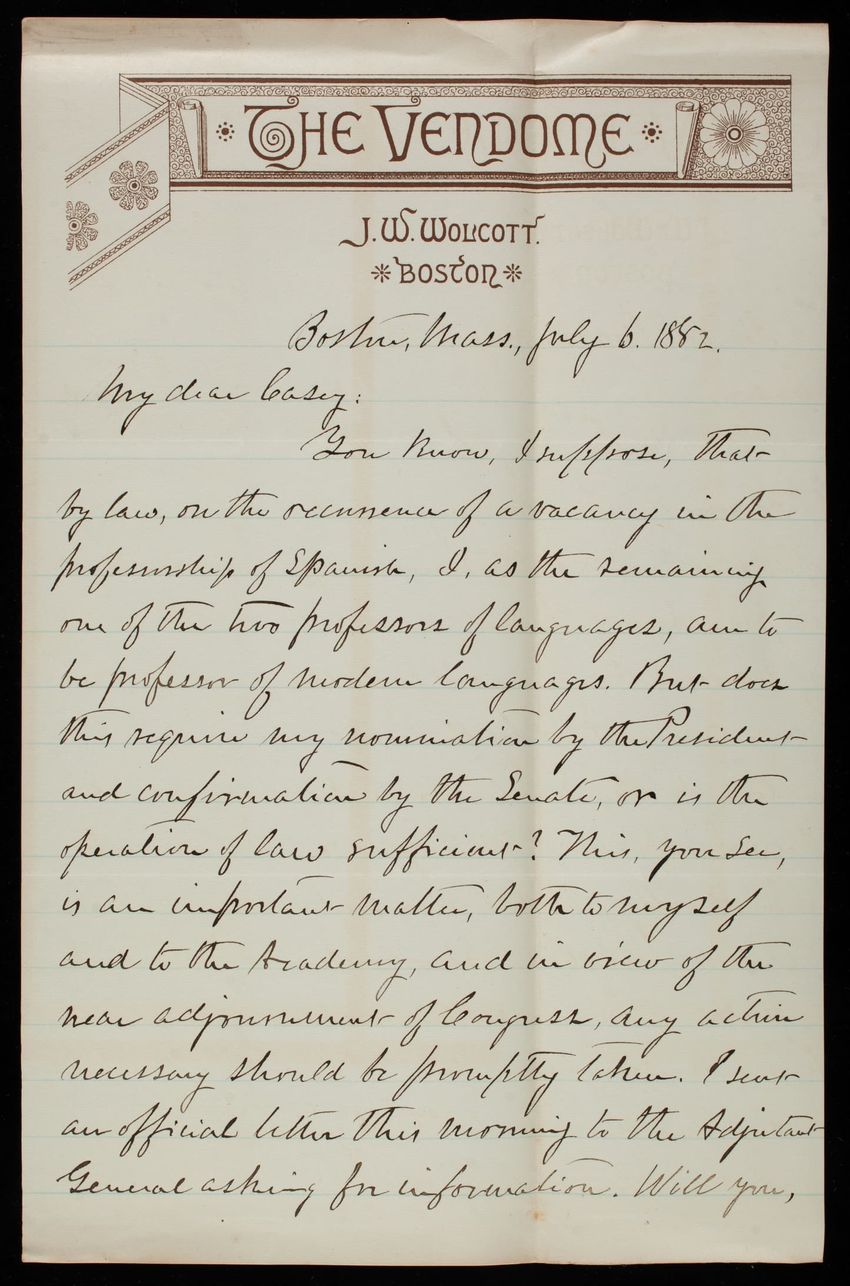 THE VENDOME
J. W. WOLCOTT.
BOSTON
Boston, Mass., July 6. 1882.
My dear Casey:
You know, I suppose, that
by law, on the occurrence of a vacancy in the
professorship of Spanish, I, as the remaining
one of the two professors of languages, am to
be professor of modern languages. But does
this require my nomination by the President
and confirmation by the Senate, or is the
operation of law sufficient? This, you see,
is an important matter, both to myself
and to the Academy, and in view of the
near adjournment of Congress, any action
necessary should be promptly taken. I sent
an official letter this morning to the Adjutant
General asking for information. Will you,